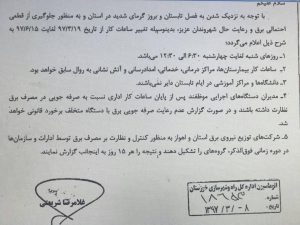 با توجه به نزدیک شدن به فصل تابستان و بروز گرمای شدید در استان و به منظور جلوگیری از قطعی
احتمالی برق و رعایت حال شهروندان عزیز، بدینوسیله تغییر ساعات کار از تاریخ ۹۷/۳/۱۹ لغایت ۹۷/۶/۱۵ به
شرح ذیل اعلام می‌گردد:
۱. روزهای شنبه لغایت چهارشنبه ۶:۳۰ الی ۱۲:۳۰ می‌باشد.
۲. ساعات کار بیمارستان‌ها، مراکز درمانی، خدماتی، امدادرسانی و آتش نشانی به روال سابق خواهد بود.
۳. دانشگاه‌ها و مراکز آموزشی در ایام تابستان دایر نمی‌باشند.
۴. مدیران دستگاه‌های اجرایی موظفند پس از پایان ساعات کار اداری نسبت به صرفه جویی در مصرف برق
نظارت داشته باشند و در صورت گزارش عدم رعایت صرفه جویی برق با دستگاه متخلف برخورد قانونی خواهد
شد.
۵. شرکت‌های توزیع نیروی برق استان و اهواز به منظور کنترل و نظارت بر مصرف برق توسط ادارات و سازمان‌ها
در دوره زمانی فوق‌الذکر، گروه‌های را تشکیل دهند و نتیجه را هر ۱۵ روز به اینجانب گزارش نمایند.
غلامرضا شریعتی
اتوماسیون اداره کل راه و شهرسازی خوزستان
شماره:
تاریخ: ۱۳۹۷ / ۳ / - ۸